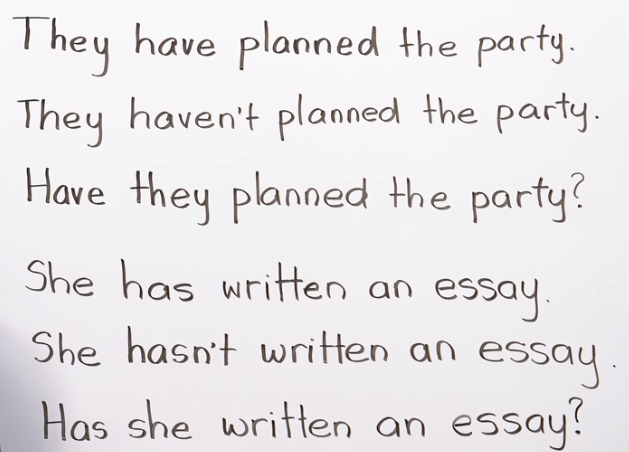 They have planned the party.
They haven't planned the party.
Have they planned the party?
She has written an essay.
She hasn't written an essay.
Has she written an essay?